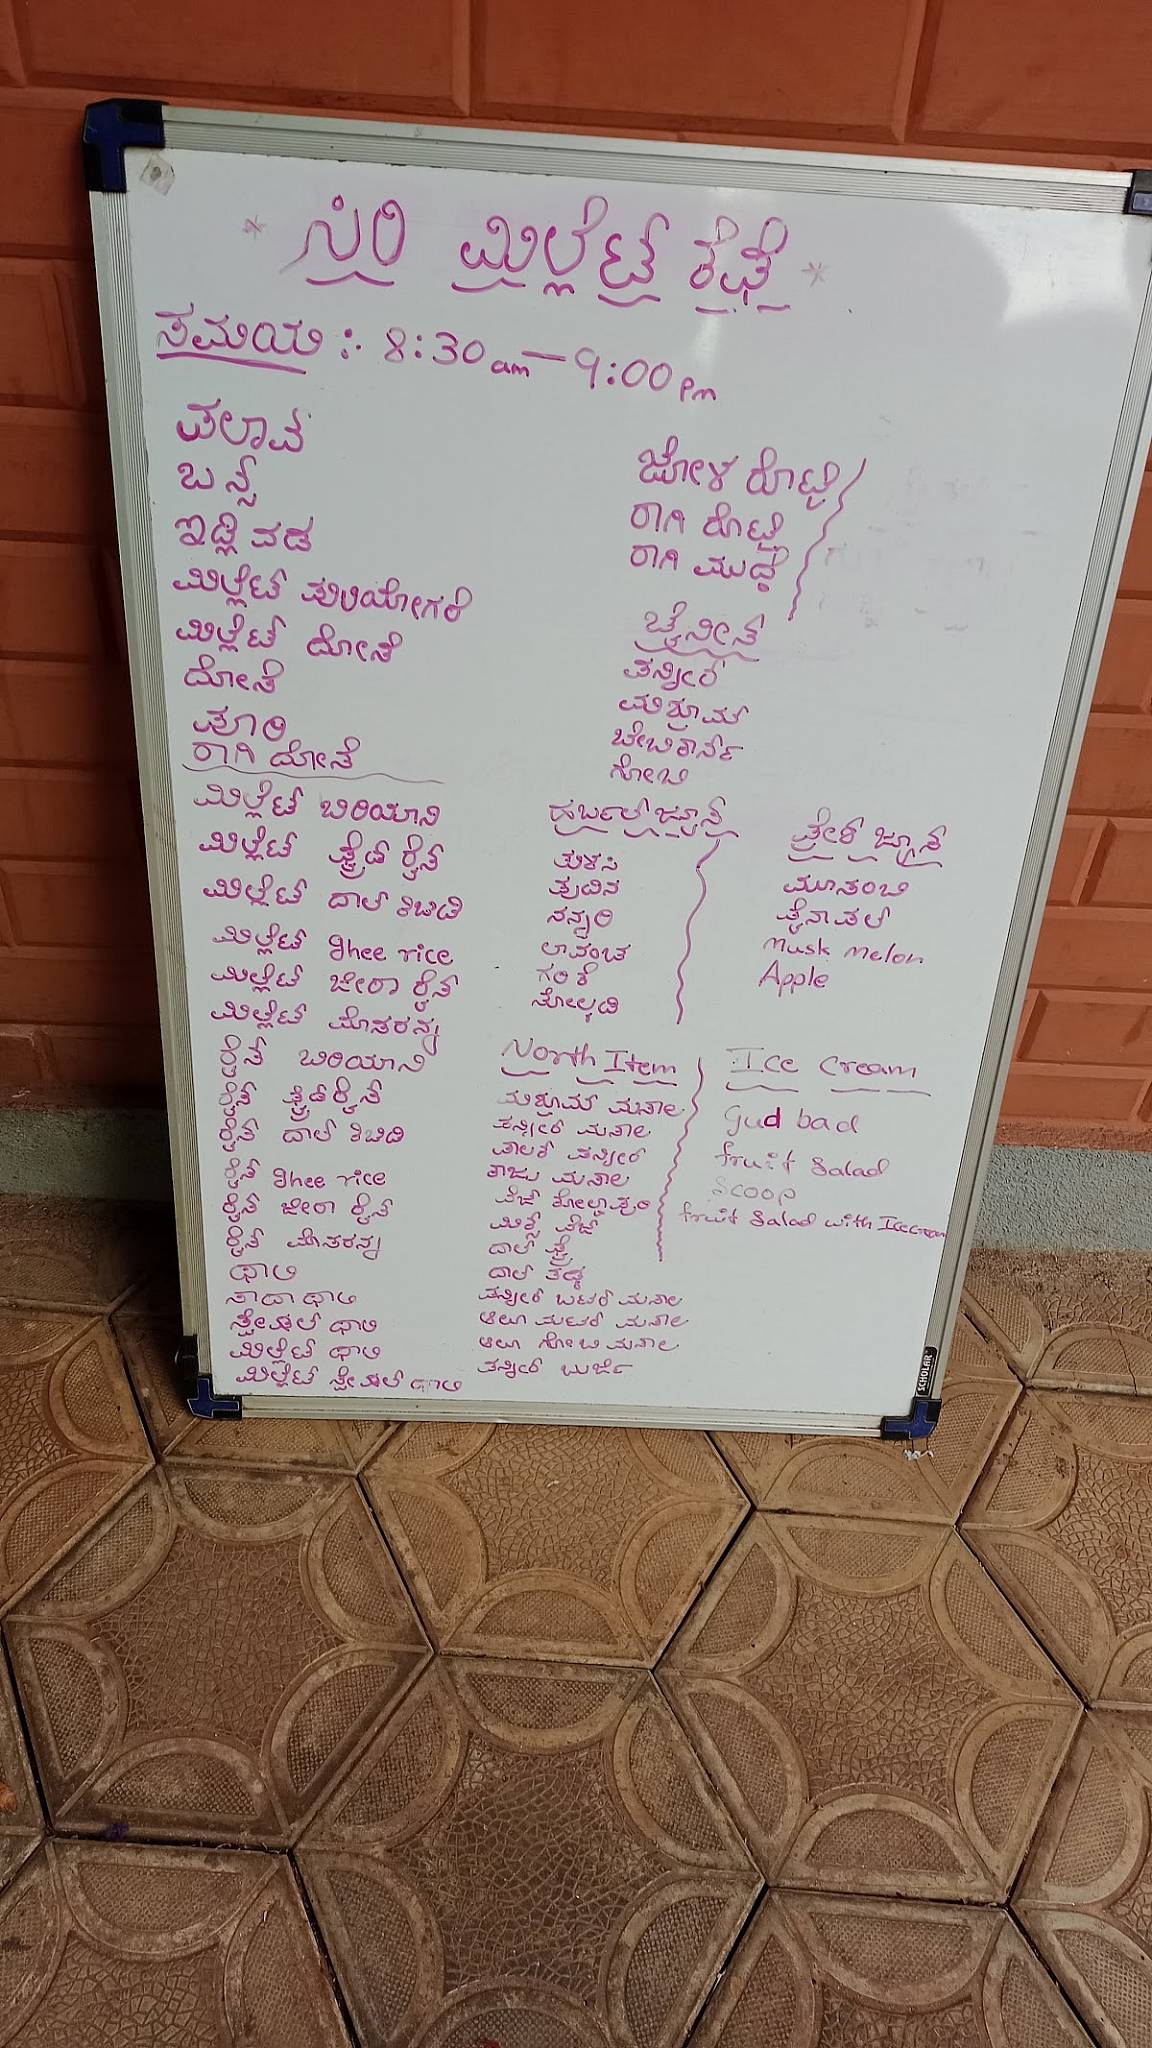 * ಸಿರಿ ಮಿಲ್ಲೆಟ್ಸ್ ಕೆಫೆ *
ಸಮಯ :- 8:30 am - 9:00 pm
ಪಲಾವ
ಬನ್ಸ್
ಇಡ್ಲಿ ವಡ
ಮಿಲ್ಲೆಟ್ ಪುಳಿಯೋಗರೆ
ಮಿಲ್ಲೆಟ್ ದೋಸೆ
ದೋಸೆ
ಪೂರಿ
ರಾಗಿ ದೋಸೆ
ಜೋಳ ರೊಟ್ಟಿ
ರಾಗಿ ರೊಟ್ಟಿ
ರಾಗಿ ಮುದ್ದೆ
ಚೈನೀಸ್
ಪನ್ನೀರ್
ಮಶ್ರೂಮ್
ಬೇಬಿಕಾರ್ನ್
ಗೋಬಿ
ಮಿಲ್ಲೆಟ್ ಬಿರಿಯಾನಿ
ಮಿಲ್ಲೆಟ್ ಫ್ರೈಡ್ ರೈಸ್
ಮಿಲ್ಲೆಟ್ ದಾಲ್ ಕಿಚಿಡಿ
ಮಿಲ್ಲೆಟ್ ghee rice
ಮಿಲ್ಲೆಟ್ ಜೀರಾ ರೈಸ್
ಮಿಲ್ಲೆಟ್ ಮೊಸರನ್ನ
ರೈಸ್ ಬಿರಿಯಾನಿ
ರೈಸ್ ಫ್ರೈಡ್ ರೈಸ್
ರೈಸ್ ದಾಲ್ ಕಿಚಿಡಿ
ರೈಸ್ ghee rice
ರೈಸ್ ಜೀರಾ ರೈಸ್
ರೈಸ್ ಮೊಸರನ್ನ
ಥಾಲಿ
ಸಾದಾ ಥಾಲಿ
ಸ್ಪೇಷಲ್ ಥಾಲಿ
ಮಿಲ್ಲೆಟ್ ಥಾಲಿ
ಮಿಲ್ಲೆಟ್ ಸ್ಪೇಷಲ್ ಥಾಲಿ
ಹರ್ಬಲ್ ಜ್ಯೂಸ್
ತುಳಸಿ
ಪುದಿನ
ನನ್ನಾರಿ
ಲಾವಂಚ
ಗರಿಕೆ
ಸೋಲ್ಕಡಿ
ಫ್ರೇಶ್ ಜ್ಯೂಸ್
ಮೂಸಂಬಿ
ಪೈನಾಪಲ್
Musk melon
Apple
North Item
ಮಶ್ರೂಮ್ ಮಸಾಲ
ಪನ್ನೀರ್ ಮಸಾಲ
ಪಾಲಕ್ ಪನ್ನೀರ್
ಕಾಜು ಮಸಾಲ
ವೆಜ್ ಕೋಲ್ಹಾಪುರಿ
ಮಿಕ್ಸ್ ವೆಜ್
ದಾಲ್ ಫ್ರೈ
ದಾಲ್ ತಡ್ಕ
ಪನ್ನೀರ್ ಬಟರ್ ಮಸಾಲ
ಆಲೂ ಮಟರ್ ಮಸಾಲ
ಆಲೂ ಗೋಬಿ ಮಸಾಲ
ಪನ್ನೀರ್ ಬುರ್ಜಿ
Ice cream
Gud bad
fruit Salad
Scoop
fruit Salad with Icecream
SCHOLAR